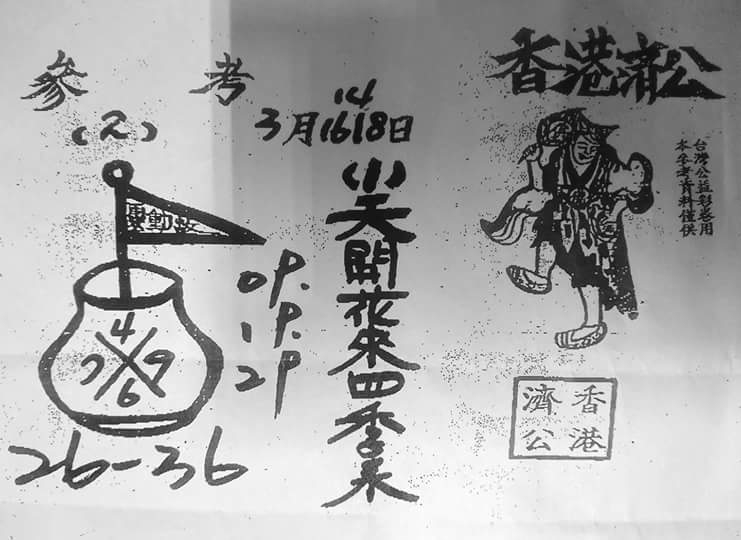 香港濟公
本參考資料僅供
台灣公益彩券用
參考
3月14 16 18日
(1)
天開花來四季來
(2)
0P.
1P.
2P
4
7 9
6
26-36
香港
濟公